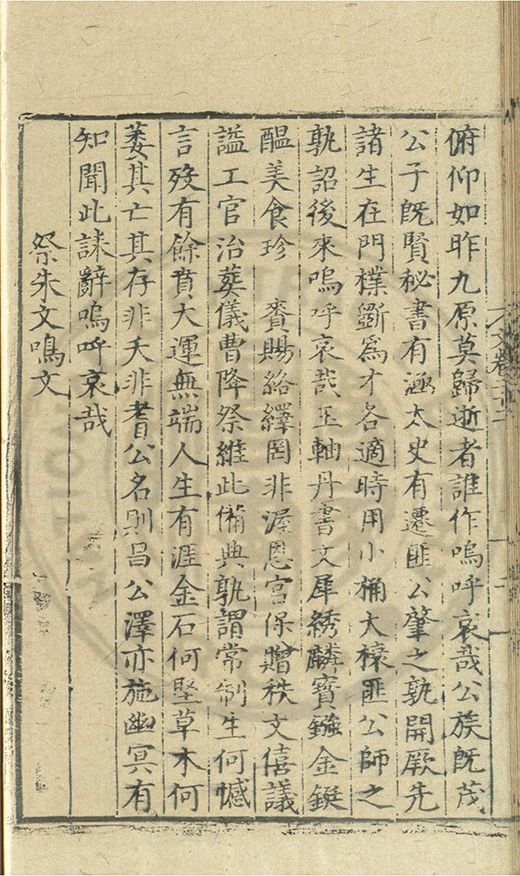 俯仰如昨九原莫歸逝者誰作嗚呼哀哉公族旣茂
公子旣賢秘書有涵太史有遷匪公肇之孰開厥先
諸生在門樸斵爲才各適時用小桷大榱匪公師之
孰詔後來嗚呼哀哉玉軸丹書文犀綉麟寳鏹金鋌
醖美食珍 賚賜絡繹罔非渥恩宮保贈秩文僖議
諡工官治葬儀曹降祭維此備典孰謂常制生何憾
言歿有餘賁大運無端人生有涯金石何堅草木何
萎其亡其存非夭非耆公名則昌公澤亦施幽冥有
知聞此誄辭嗚呼哀哉
祭朱文鳴文